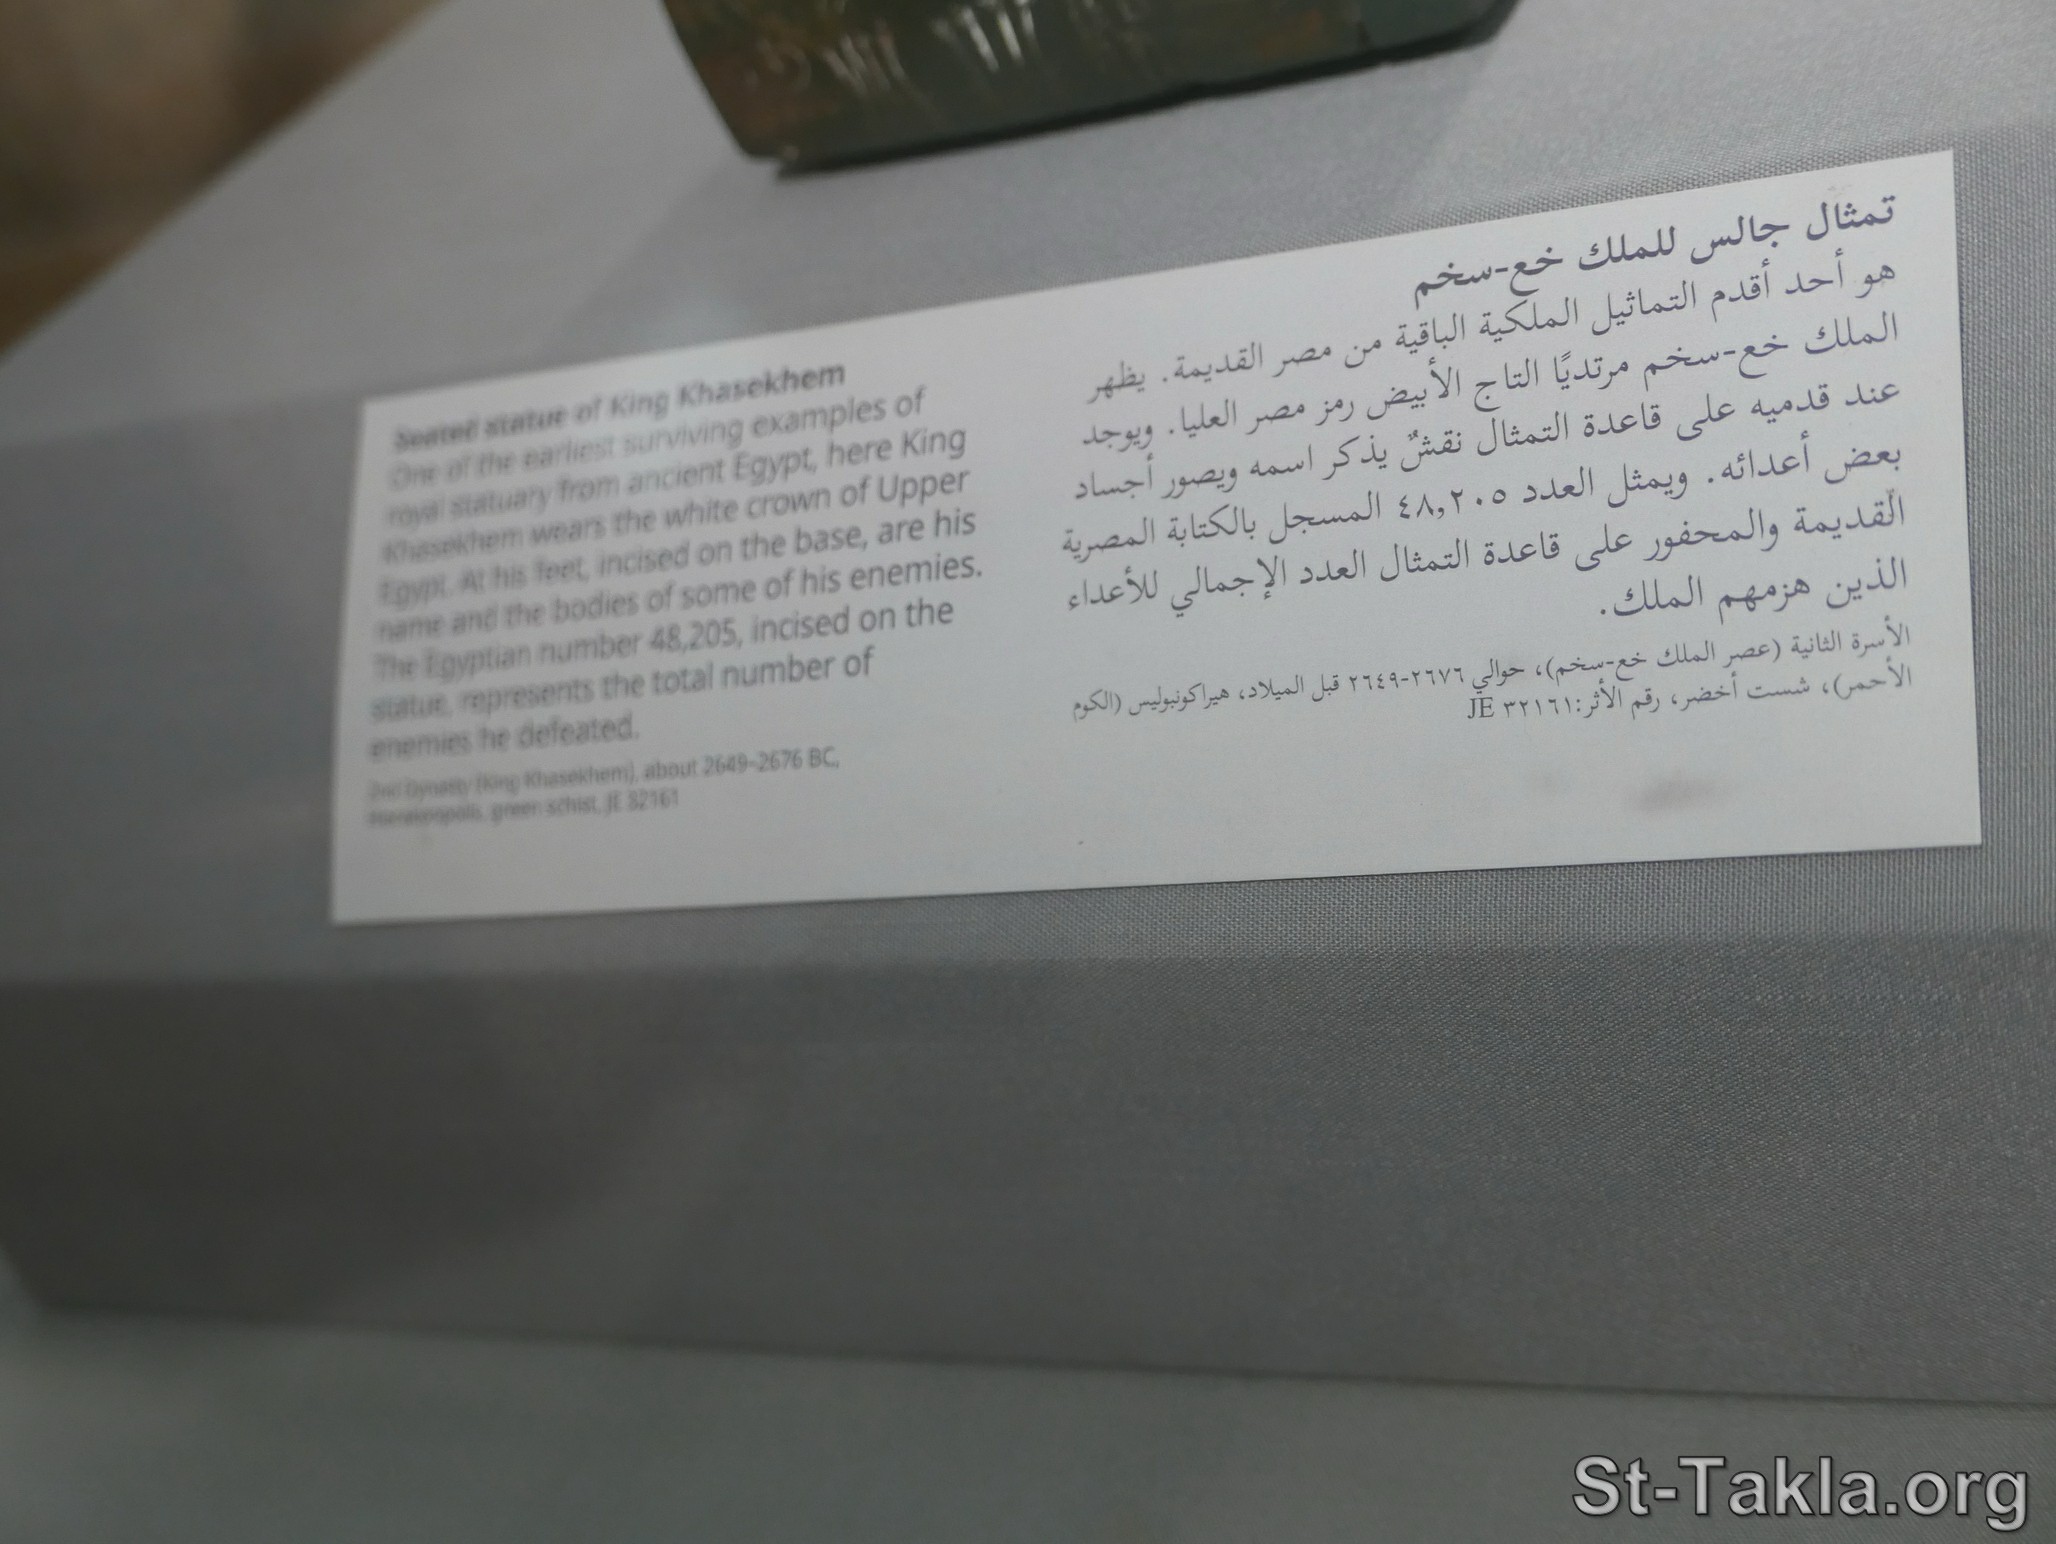 تمثال جالس للملك خع-سخم
هو أحد أقدم التماثيل الملكية الباقية من مصر القديمة. يظهر
الملك خع-سخم مرتديًا التاج الأبيض رمز مصر العليا. ويوجد
عند قدميه على قاعدة التمثال نقشٌ يذكر اسمه ويصور أجساد
بعض أعدائه. ويمثل العدد ٤٨,٢٠٥ المسجل بالكتابة المصرية
القديمة والمحفور على قاعدة التمثال العدد الإجمالي للأعداء
الذين هزمهم الملك.
الأسرة الثانية (عصر الملك خع-سخم)، حوالي ٢٦٧٦-٢٦٤٩ قبل الميلاد، هيراكونبوليس (الكوم
الأحمر)، شست أخضر، رقم الأثر:JE ٣٢١٦١
Seated statue of King Khasekhem
One of the earliest surviving examples of
royal statuary from ancient Egypt, here King
Khasekhem wears the white crown of Upper
Egypt. At his feet, incised on the base, are his
name and the bodies of some of his enemies.
The Egyptian number 48,205, incised on the
statue, represents the total number of
enemies he defeated.
2nd Dynasty (King Khasekhem), about 2649-2676 BC,
Hierakonpolis, green schist, JE 32161
St-Takla.org